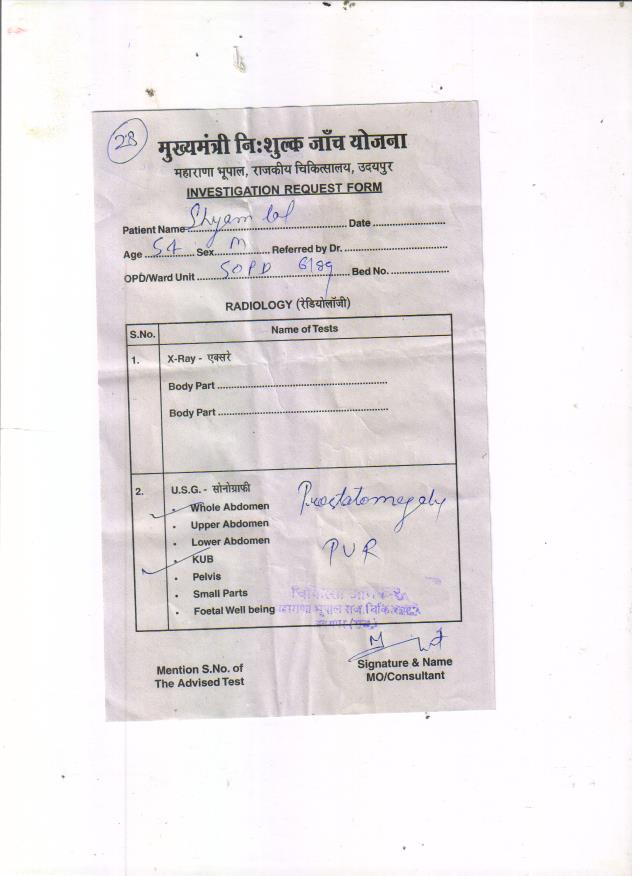 28
मुख्यमंत्री नि:शुल्क जाँच योजना
महाराणा भूपाल, राजकीय चिकित्सालय, उदयपुर
INVESTIGATION REQUEST FORM
Patient Name Shyam lal Date
Age 54 Sex M Referred by Dr.
OPD/Ward Unit SOPD 6189 Bed No.
RADIOLOGY (रेडियोलॉजी)
S.No. Name of Tests
1. X-Ray - एक्सरे
Body Part
Body Part
2. U.S.G. - सोनोग्राफी
Whole Abdomen Prostatomegaly
Upper Abdomen
Lower Abdomen PVR
KUB
Pelvis
Small Parts
Foetal Well being महाराणा भूपाल राज. चिकि.
Mention S.No. of
The Advised Test
Signature & Name
MO/Consultant